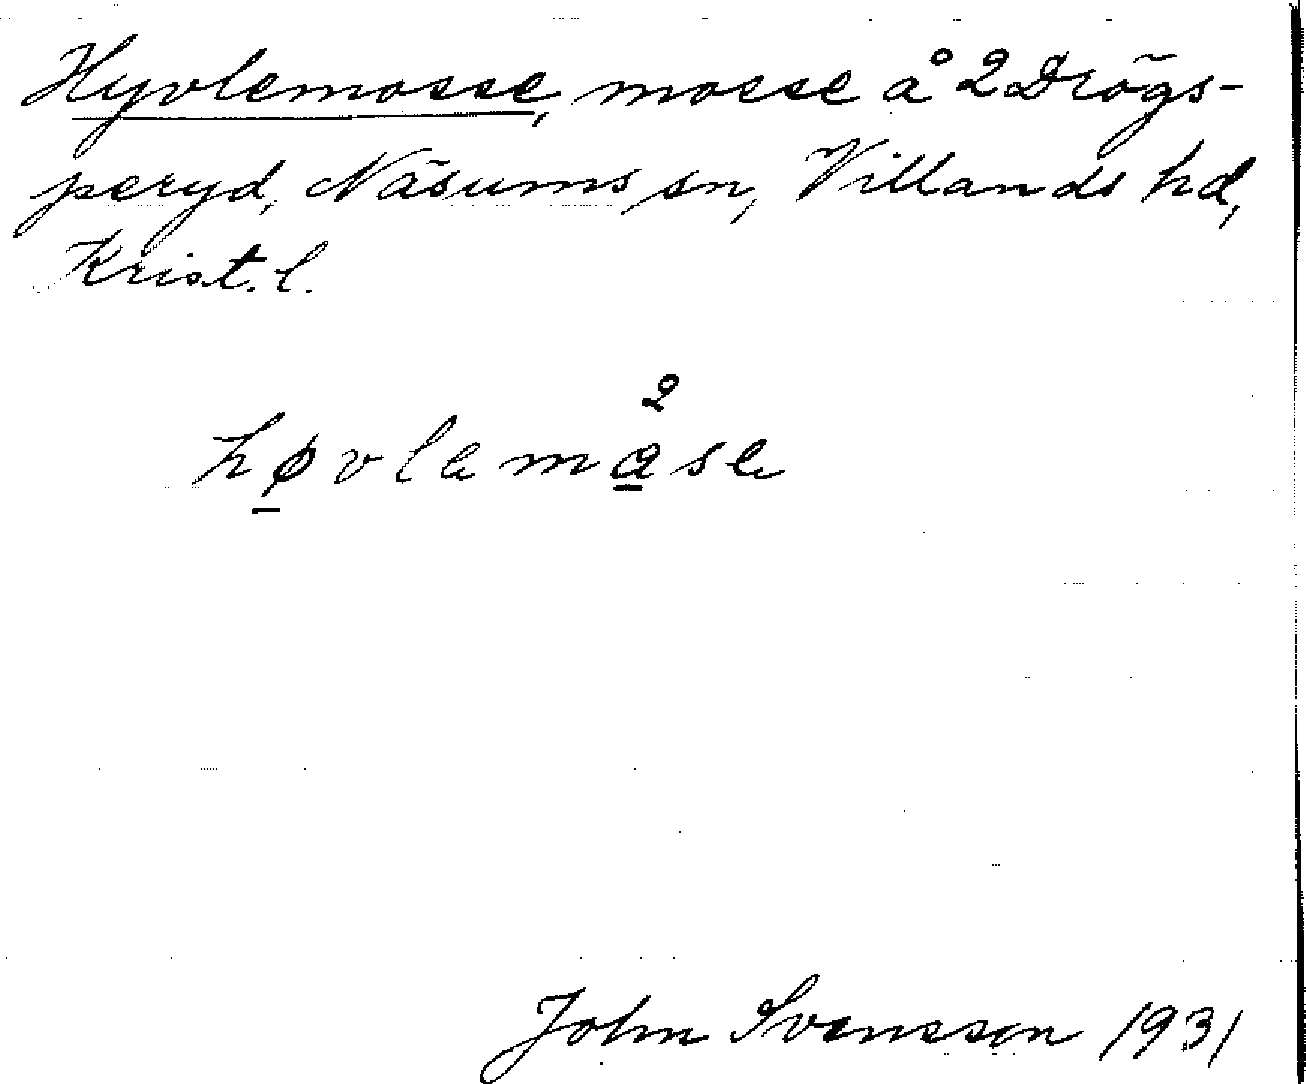 Hyvlemosse, mosse å 2 Drögs-
peryd, Näsums sn, Villands hd,
Krist. l.
2
høvlemase
John Svensson 1931